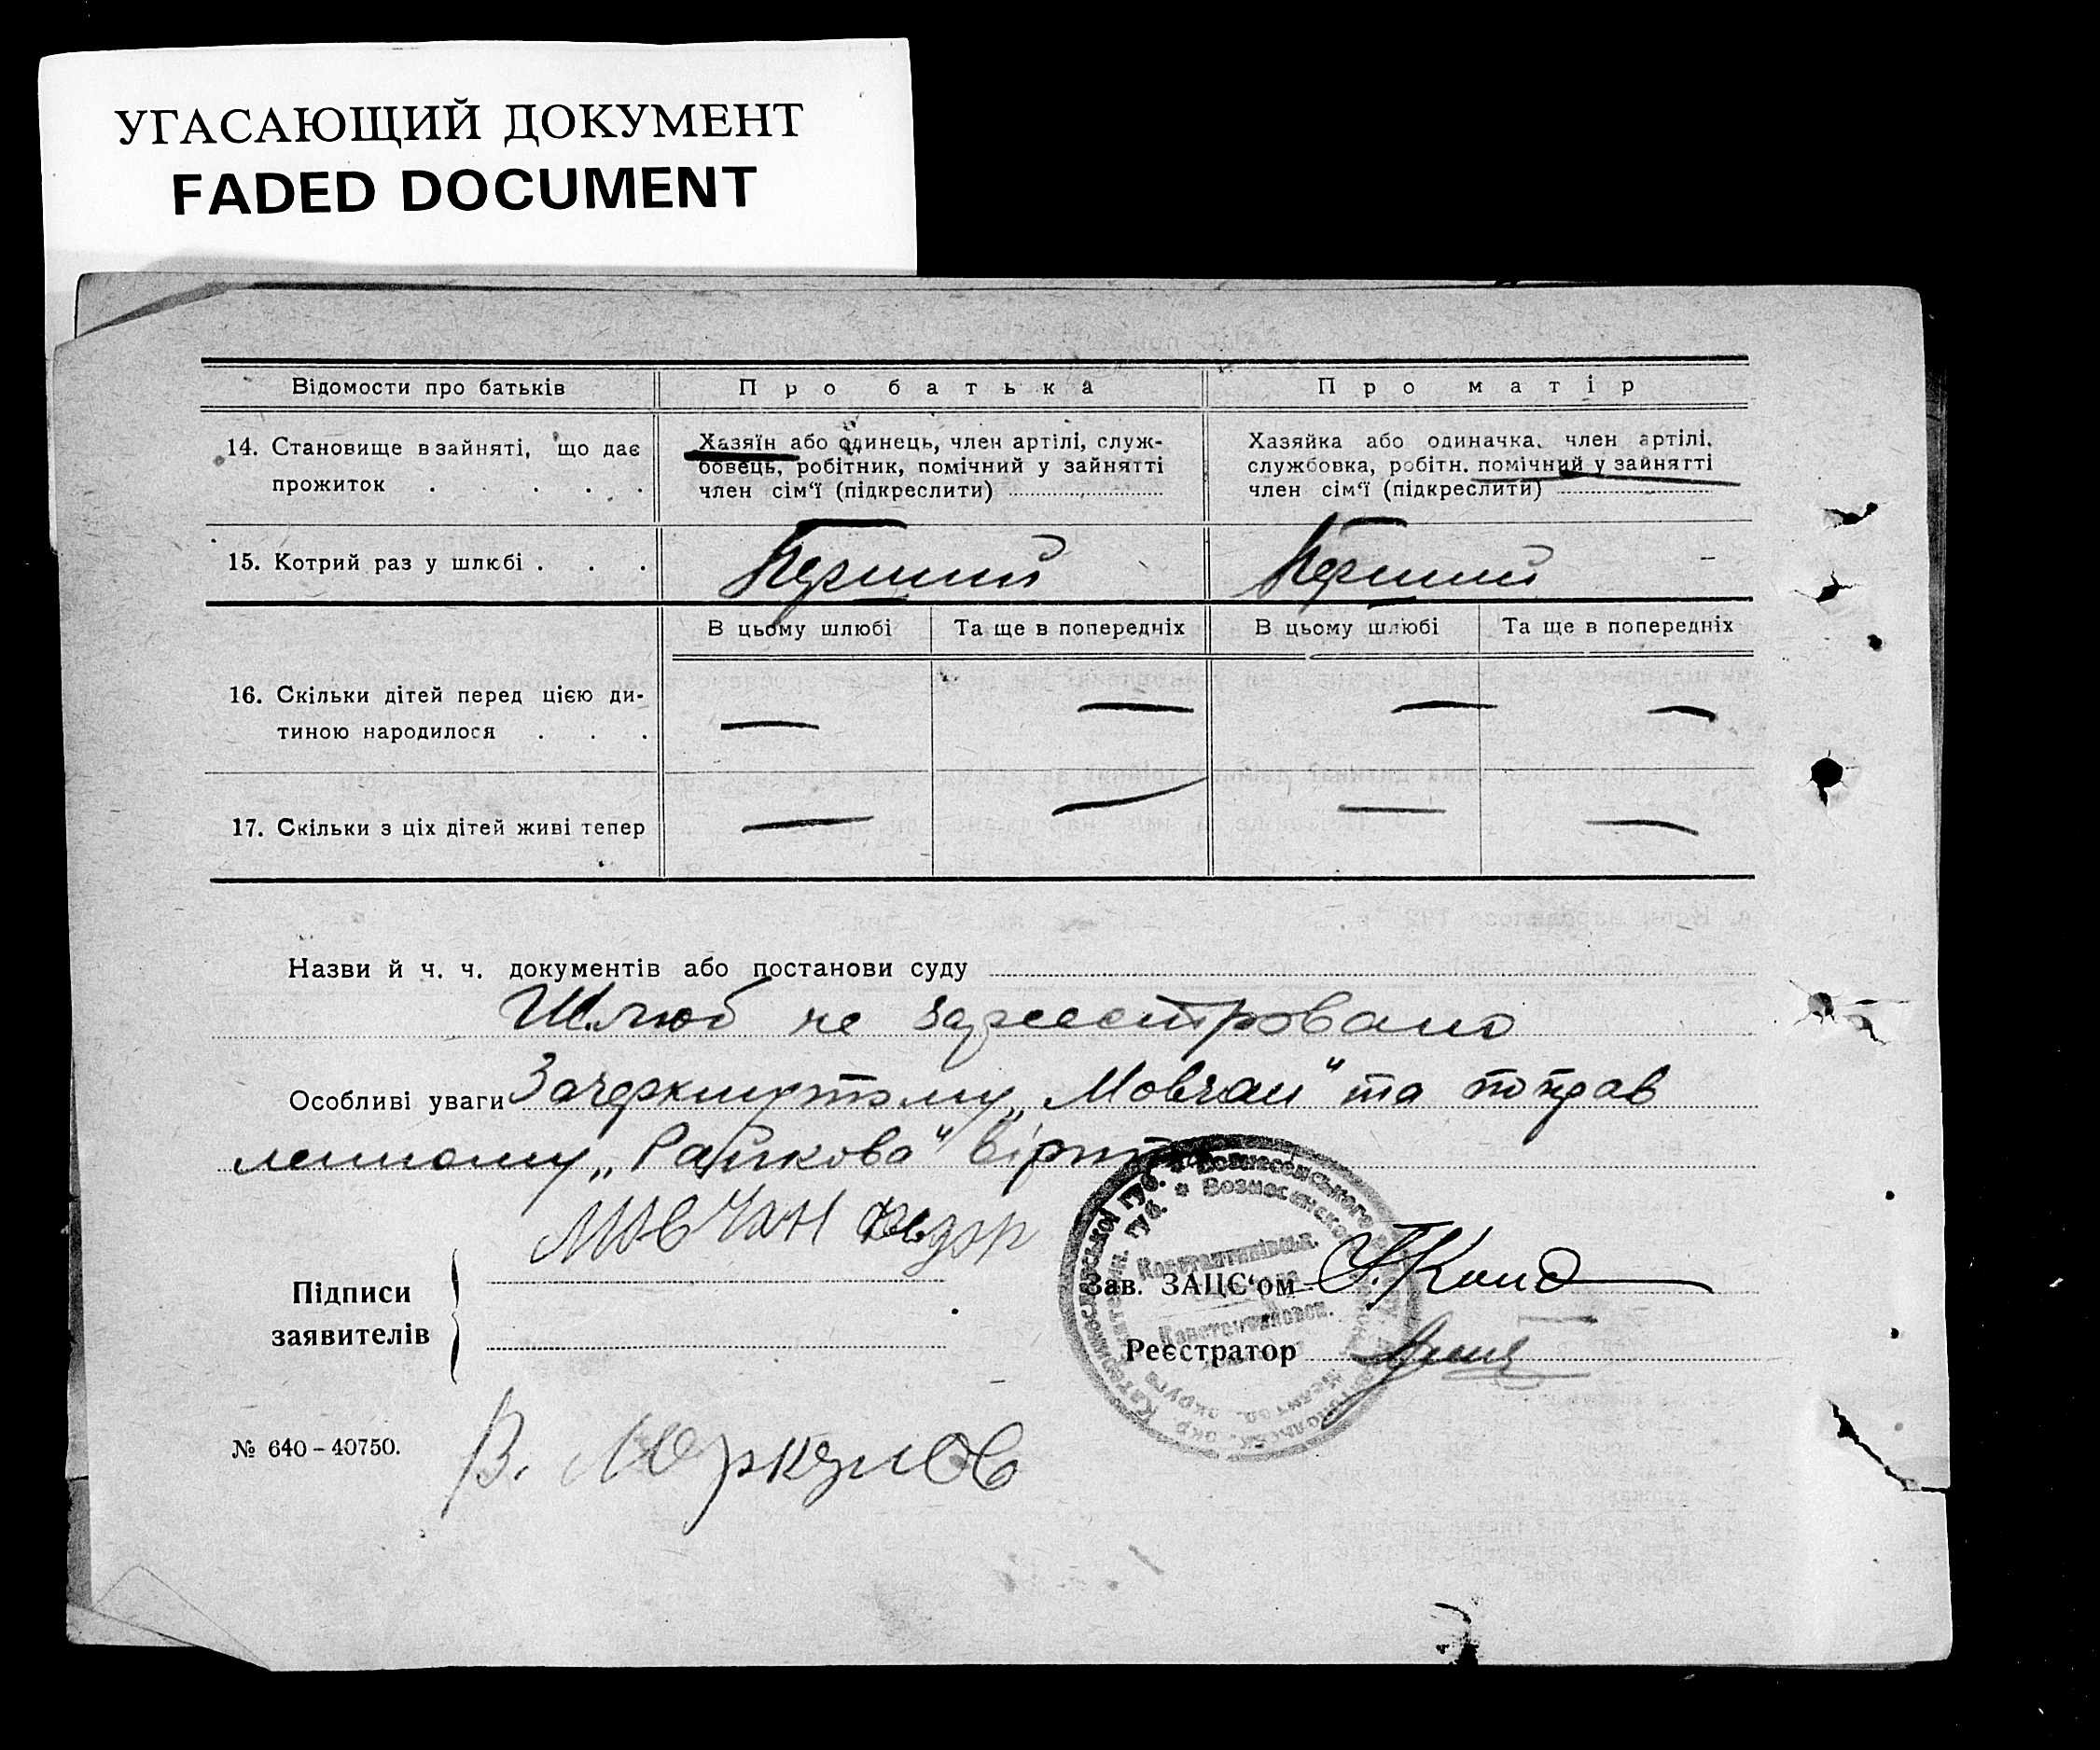 УГАСАЮЩИЙ ДОКУМЕНТ
FADED DOCUMENT
Відомости про батьків
Про батька
Про матір
14. Становище в зайняті, що дає
прожиток . . . . .
Хазяїн або одинець, член артілі, служ-
бовець, робітник, помічний у зайнятті
член сім'ї (підкреслити)
Хазяйка або одиначка, член артілі,
службовка, робітн. помічний у зайнятті
член сім'ї (підкреслити)
15. Котрий раз у шлюбі . . .
Перший
Перший
В цьому шлюбі
Та ще в попередніх
В цьому шлюбі
Та ще в попередніх
16. Скільки дітей перед цією ди-
тиною народилося . . .
— — — —
17. Скільки з ціх дітей живі тепер
— — — —
Назви й ч. ч. документів або постанови суду
Шлюб не зареестровано
Особливі уваги Зачеркнутому „Мовчан" та поправ
ленному „Райкова" вірити
Мовчан Федор
Підписи
заявителів
Зав. ЗАЦС'ом
Реєстратор
В. Меркулов
№ 640-40750.